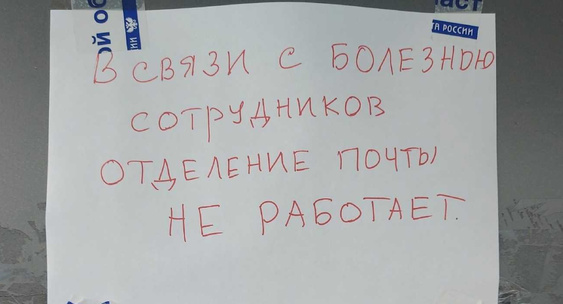 ой об
ИИ
аст
ТА РОССИИ
В СВЯЗИ С БОЛЕЗНЬЮ
СОТРУДНИКОВ
ОТДЕЛЕНИЕ ПОЧТЫ
НЕ РАБОТАЕТ.